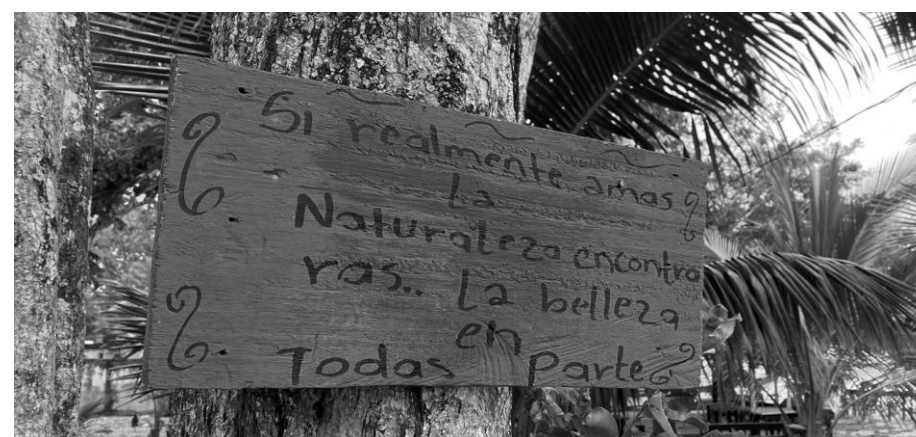 Si realmente amas
La
Naturaleza encontra
ras.. La belleza
en
Todas Parte